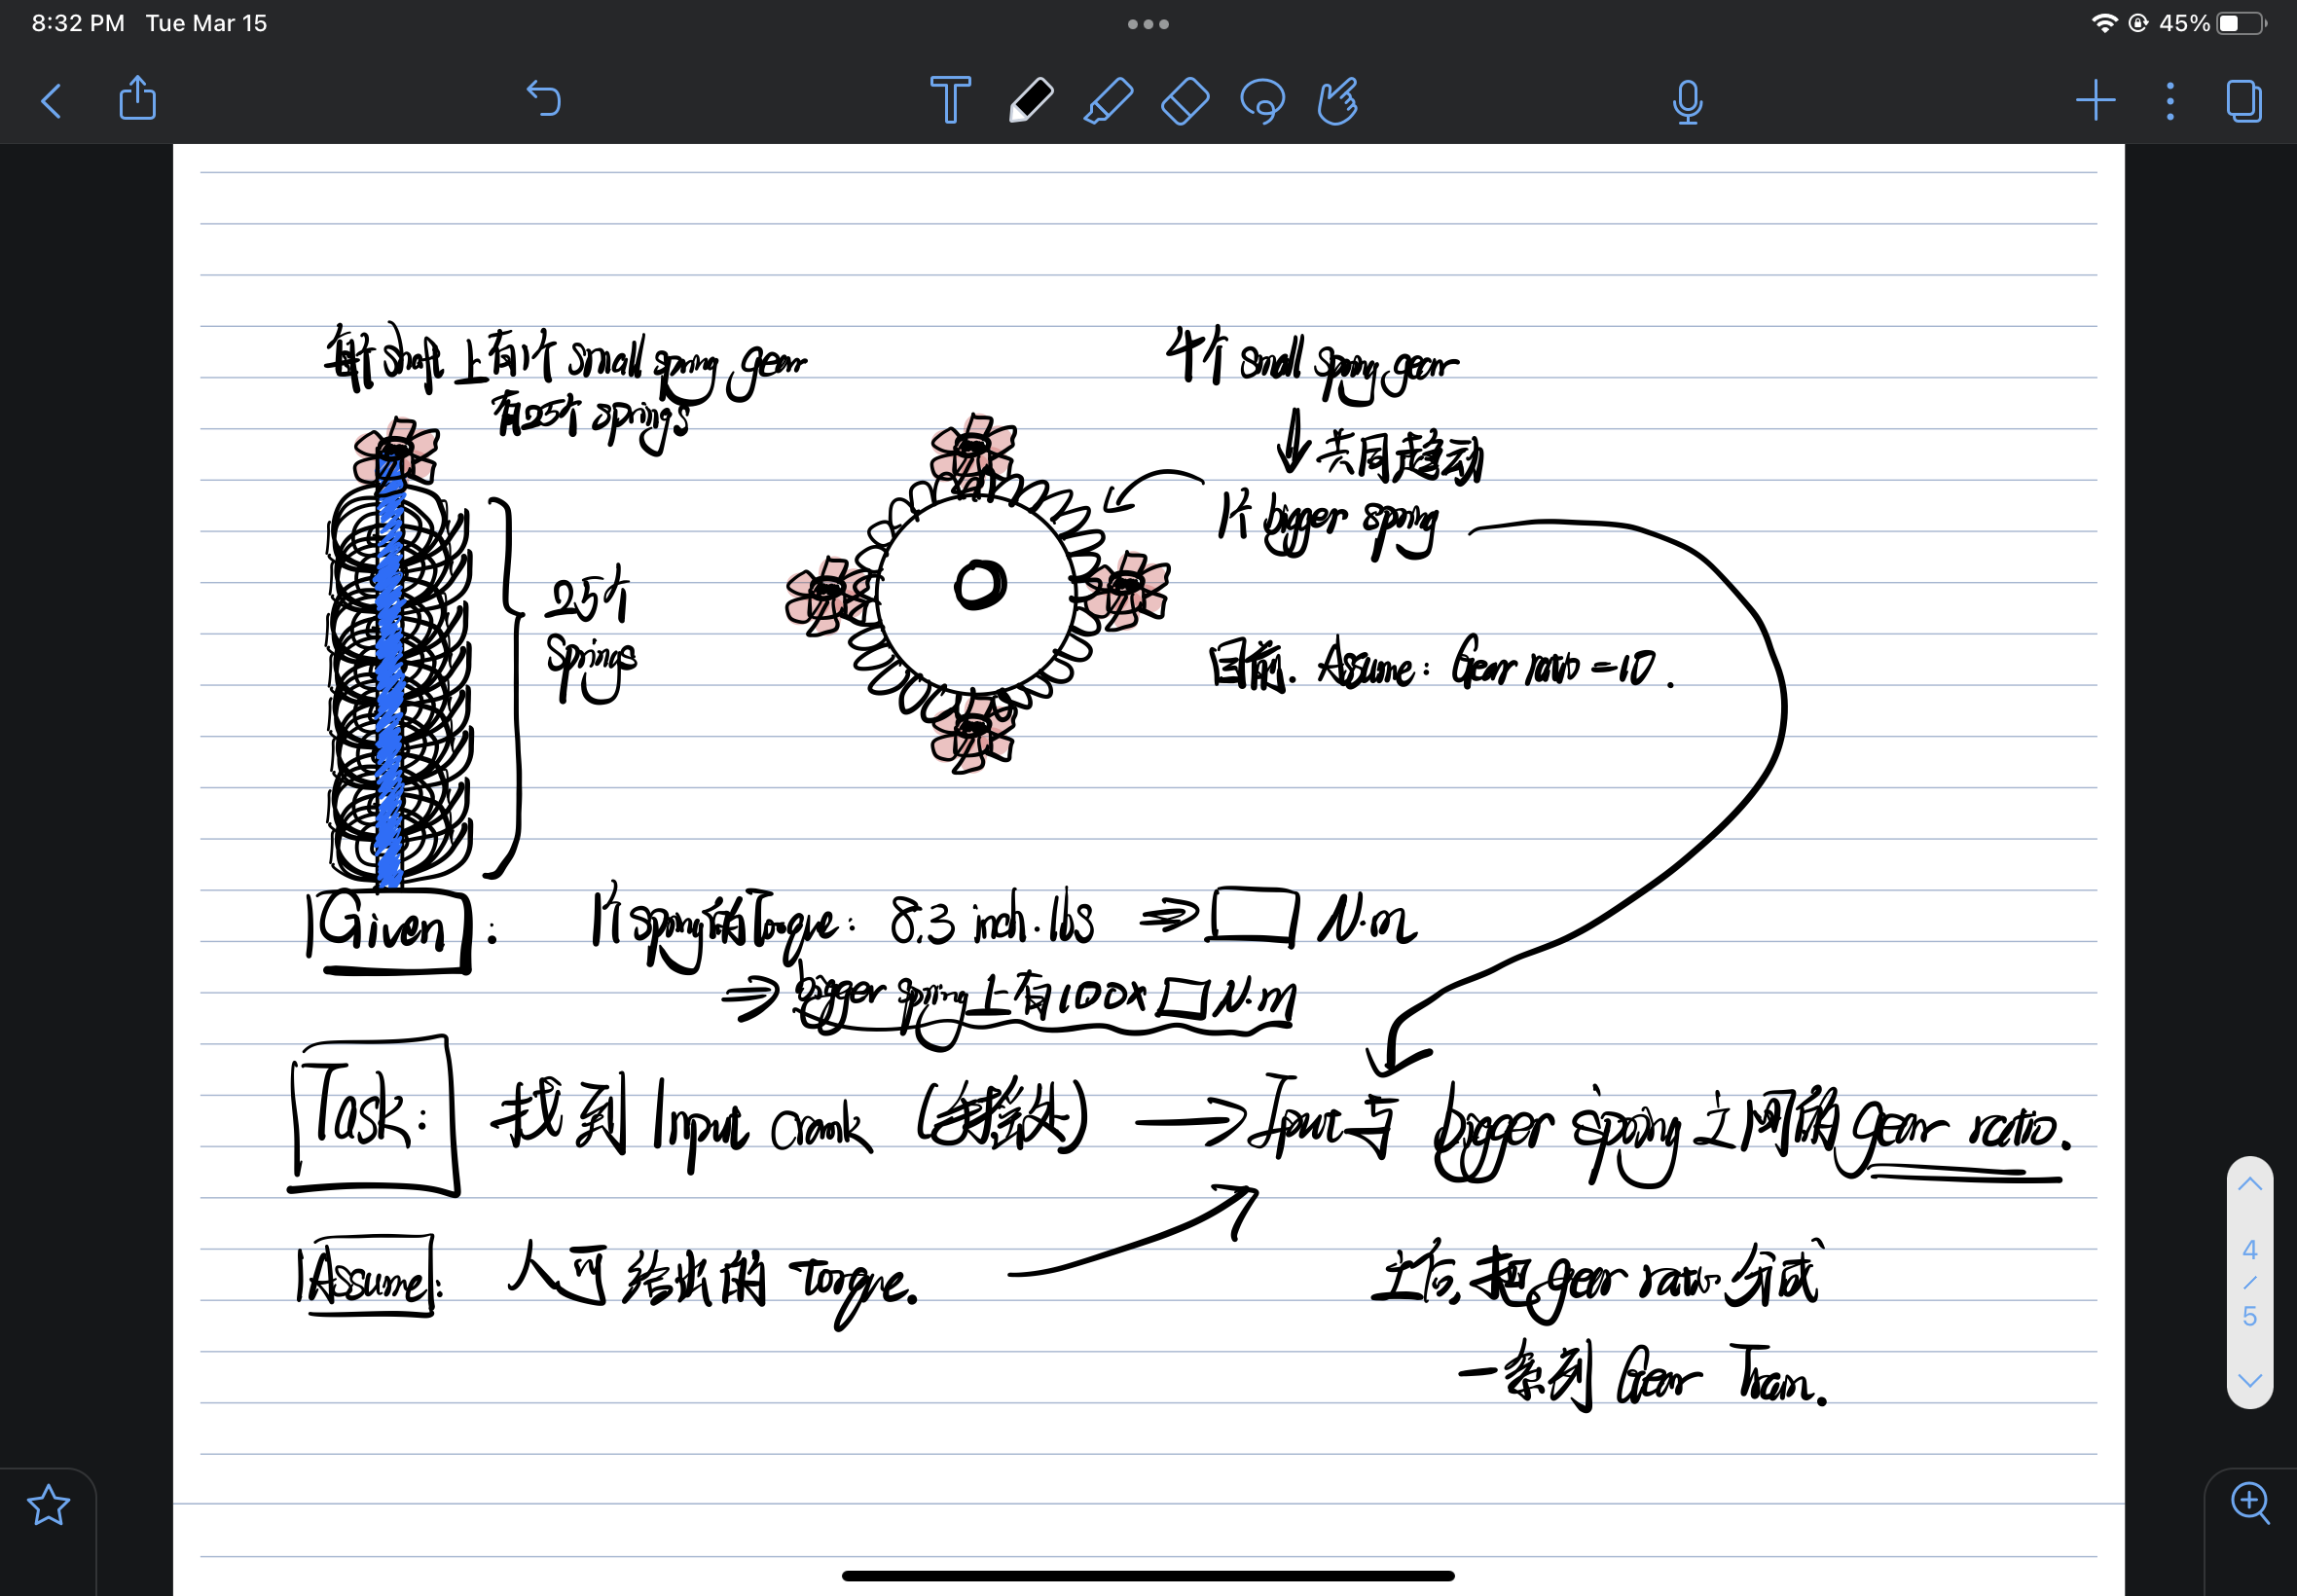 8:32 PM Tue Mar 15
45%
每个 shaft 上有1个 small spring gear
有25个 springs
4个 small spring gear
共同驱动
1个 bigger spring
25个
springs
目前. Assume: Gear ratio = 10.
Given: 1个 spring有 Torque: 8.3 inch.lbs ⇒ □ N·m
⇒ bigger spring 上有 100 x □ N·m
Task: 找到 Input crank () → Input 与 bigger spring 之间的 gear ratio.
Assume: 人可给出的 Torque.
之后, 把 gear ratio 分成
一系列 Gear Train.
4
/
5